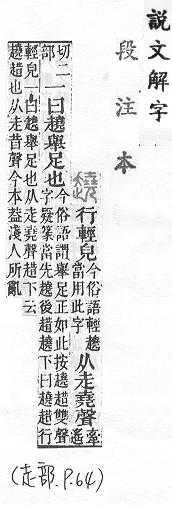 說文解字
段注本
趬 行輕皃 今俗語輕趬當用此字 从走堯聲 牽遙
切二部 一曰趬舉足也 今俗語謂舉足正如此按趬趞雙聲字疑篆當先趬後趞趬下曰趬趞行
輕皃一曰趬舉足也从走堯聲趞下云
趬趞也从走昔聲今本葢淺人所亂
(走部.P.64)